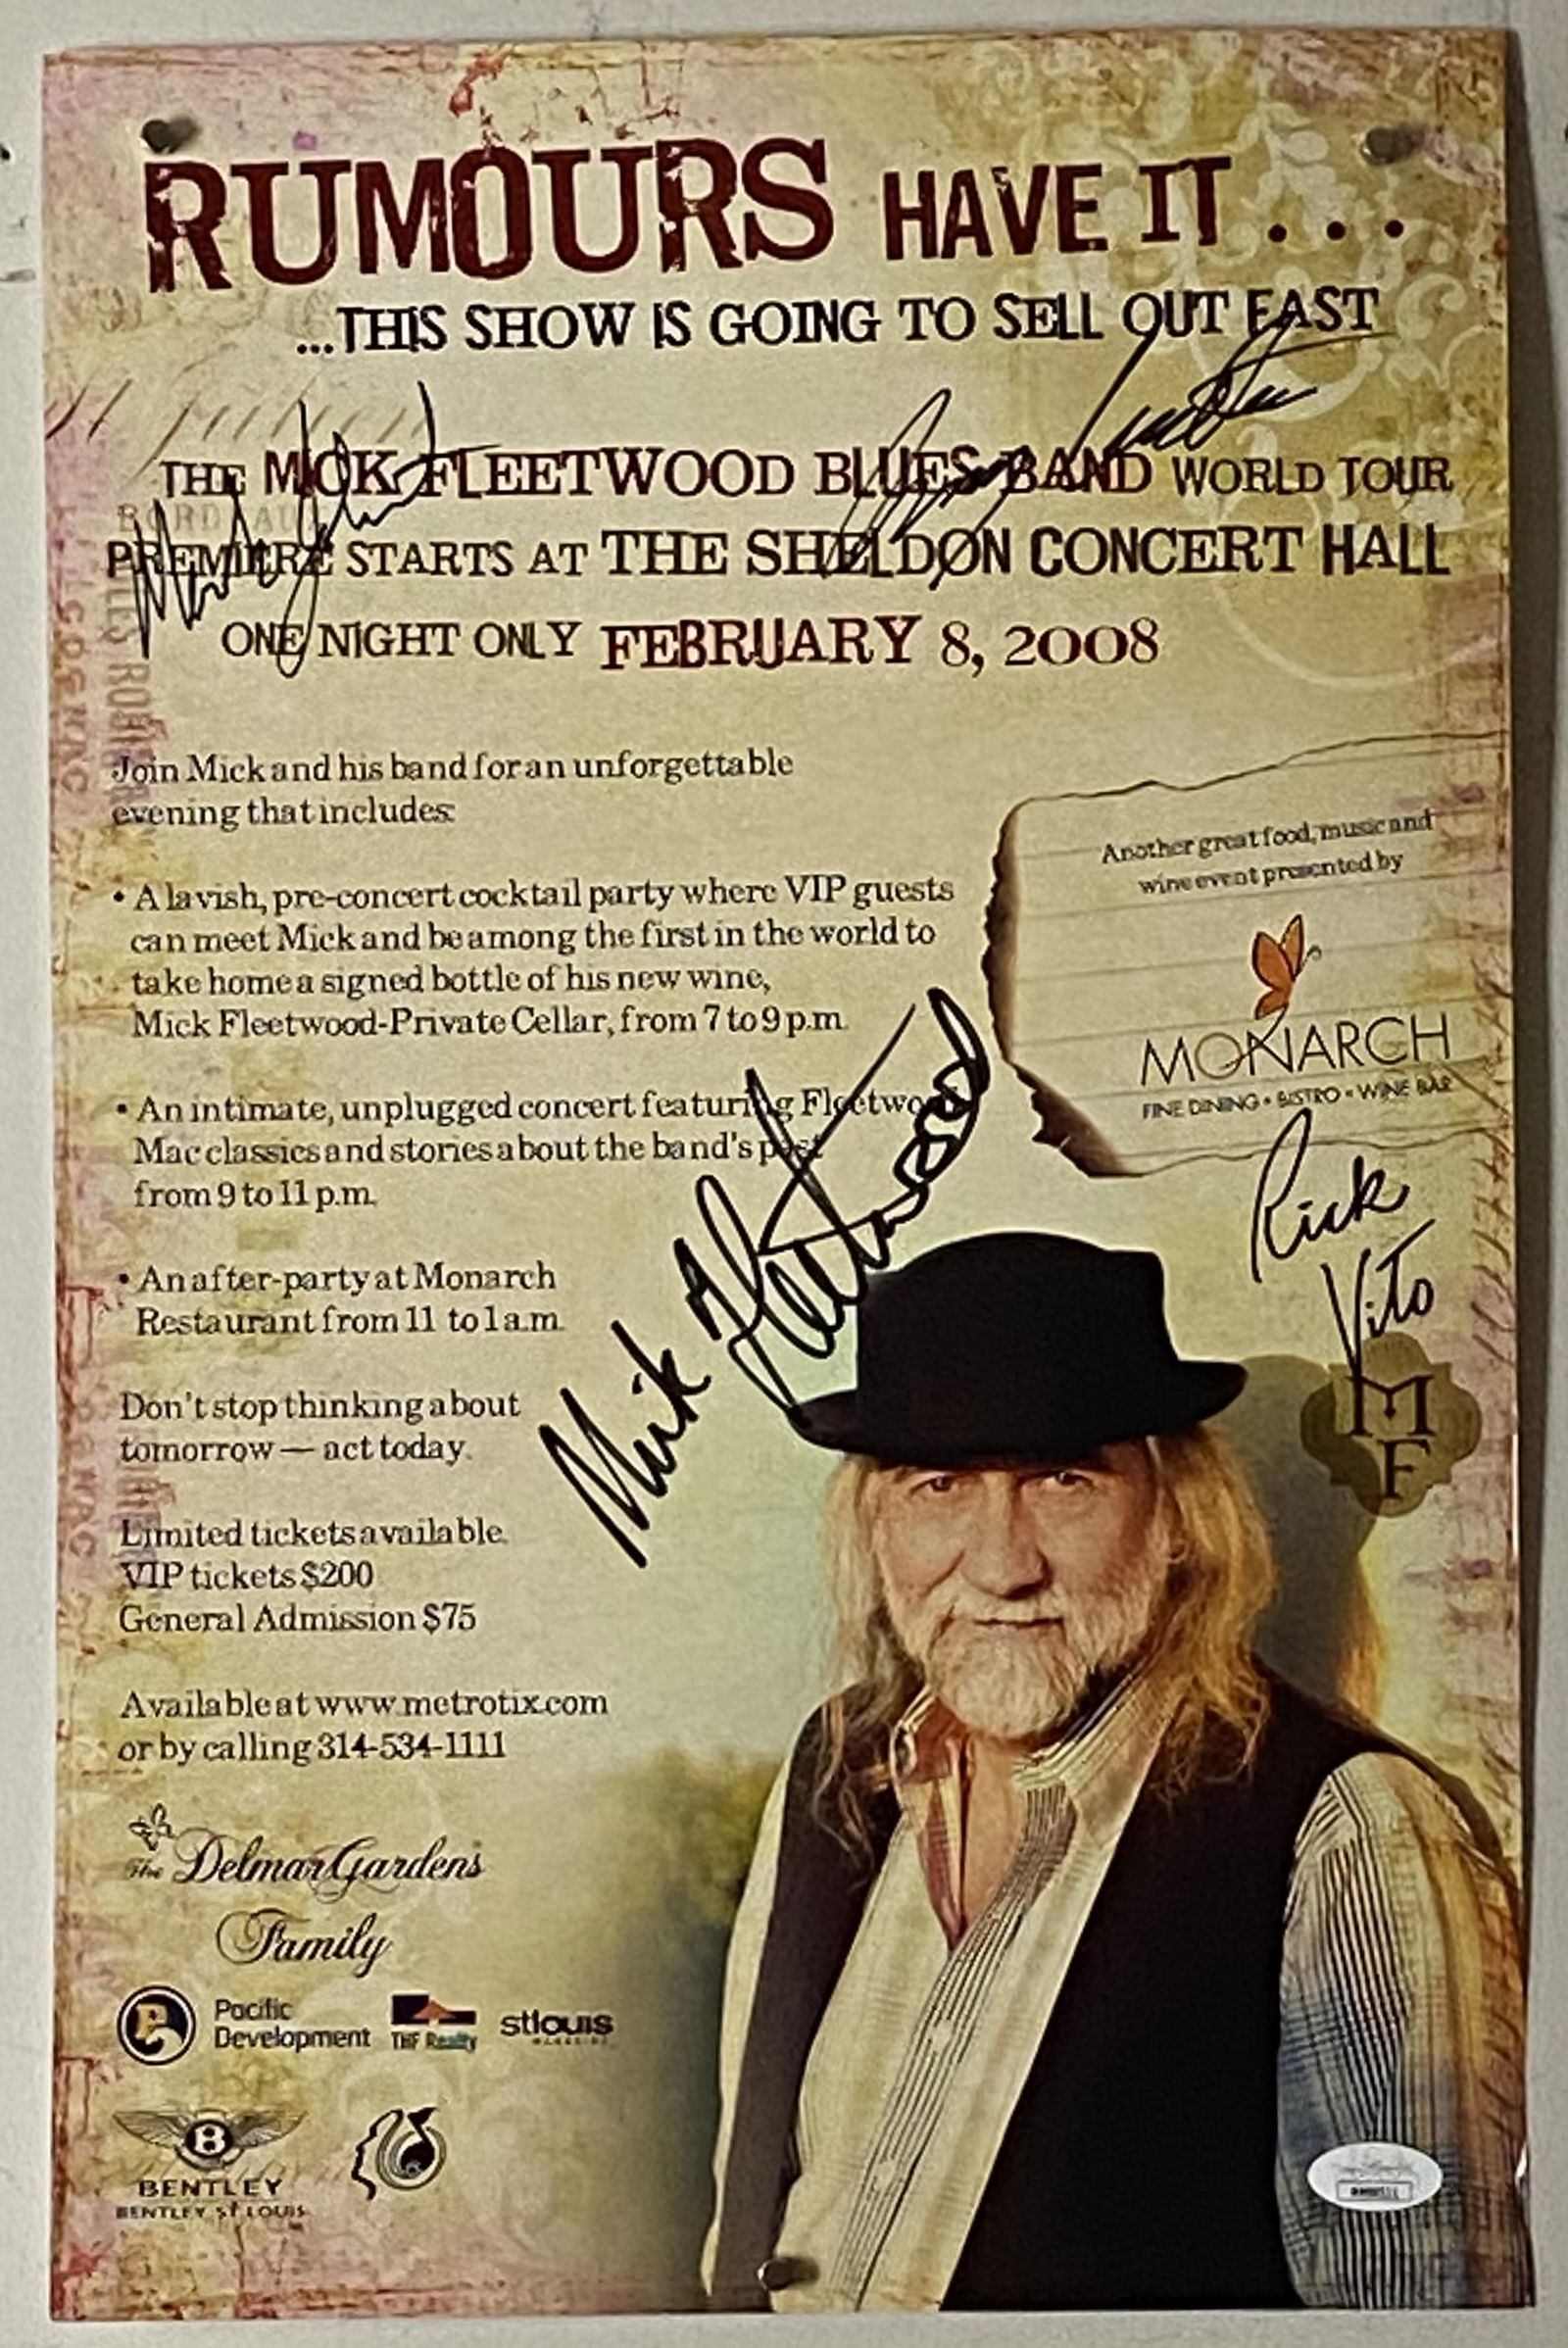 RUMOURS HAVE IT . . .
...THIS SHOW IS GOING TO SELL OUT FAST
THE MICK FLEETWOOD BLUES BAND WORLD TOUR
PREMIERE STARTS AT THE SHELDON CONCERT HALL
ONE NIGHT ONLY FEBRUARY 8, 2008
Join Mick and his band for an unforgettable
evening that includes:
• A lavish, pre-concert cocktail party where VIP guests
can meet Mick and be among the first in the world to
take home a signed bottle of his new wine,
Mick Fleetwood-Private Cellar, from 7 to 9 p.m.
• An intimate, unplugged concert featuring Fleetwood
Mac classics and stories about the band's past
from 9 to 11 p.m.
• An after-party at Monarch
Restaurant from 11 to 1 a.m.
Don't stop thinking about
tomorrow — act today.
Limited tickets available.
VIP tickets $200
General Admission $75
Available at www.metrotix.com
or by calling 314-534-1111
Another great food, music and
wine event presented by
MONARCH
FINE DINING • BISTRO • WINE BAR
Mick Fleetwood
Rick
Vito
MF
The Delmar Gardens
Family
Pacific
Development
THF Realty
stlouis
B
BENTLEY
BENTLEY ST LOUIS